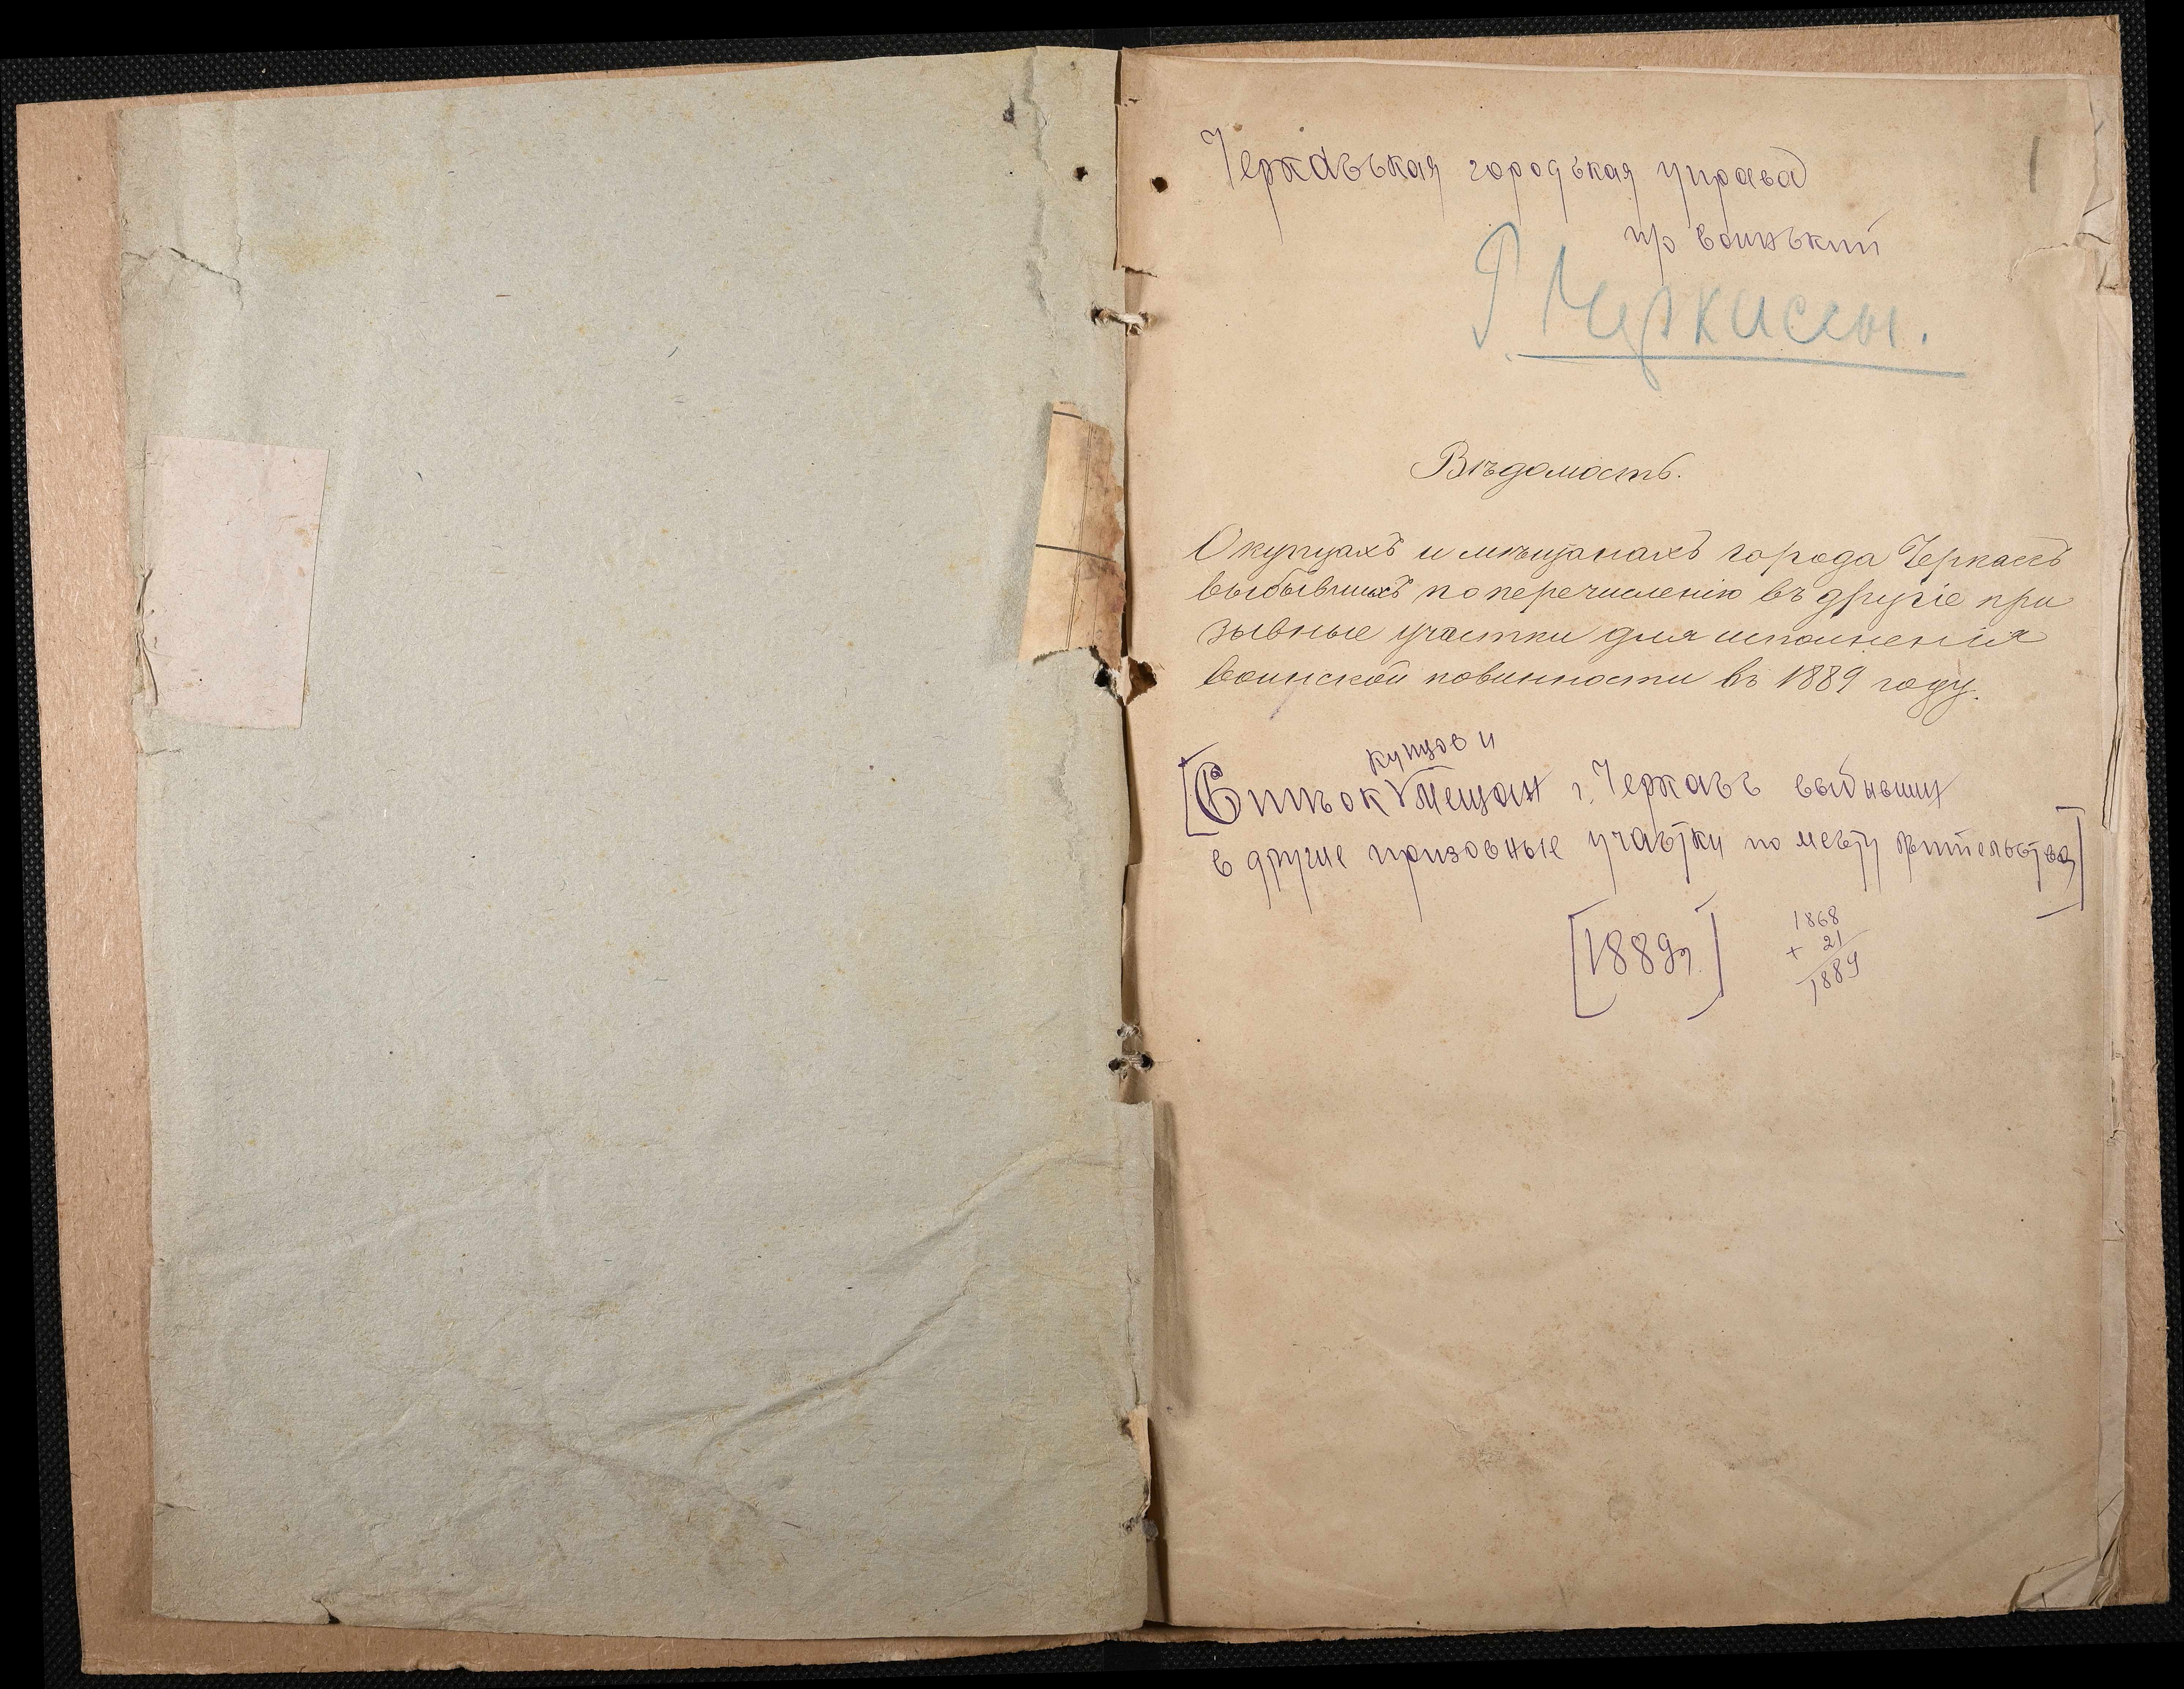 1
Черкасская городская управа
пр воинский
Г. Черкассы.
Вѣдомость.
О купцахъ и мѣщанахъ города Черкассъ
выбывшихъ по перечисленію въ другіе при
зывные участки для исполненія
воинской повинности въ 1889 году.
купцов и
[Список V мещан г. Черкасс выбывших
в другие призовные участки по месту жительства]
[1889 г.]
1868
+ 21
1889